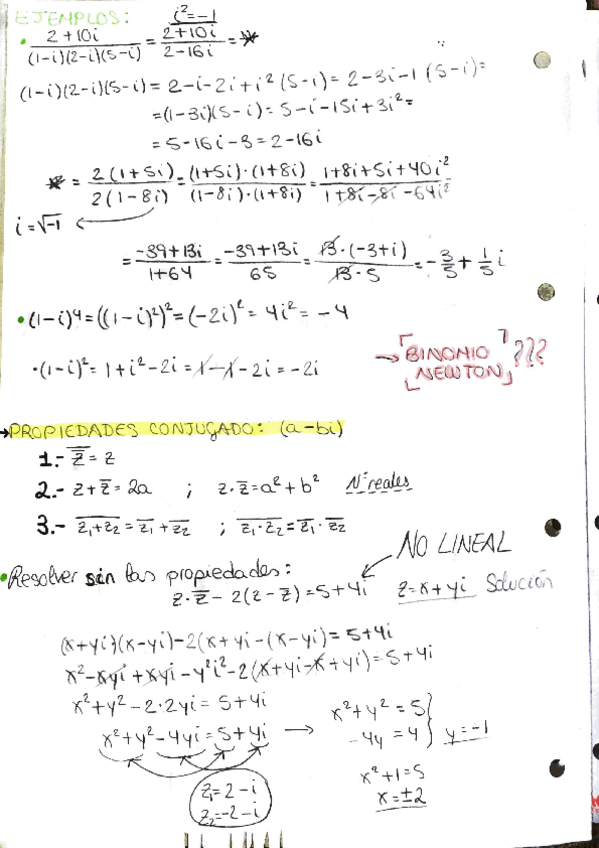 EJEMPLOS: i²=-1
• 2+10i / (1-i)(2-i)(5-i) = 2+10i / 2-16i = *
(1-i)(2-i)(5-i) = 2-i-2i+i² (5-i) = 2-3i-1 (5-i) =
= (1-3i)(5-i) = 5-i-15i+3i² =
= 5-16i-3 = 2-16i
* = 2(1+5i) / 2(1-8i) = (1+5i)·(1+8i) / (1-8i)·(1+8i) = 1+8i+5i+40i² / 1+8i-8i-64i²
i=√-1
= -39+13i / 1+64 = -39+13i / 65 = 13·(-3+i) / 13·5 = -3/5 + 1/5 i
• (1-i)⁴ = ((1-i)²)² = (-2i)² = 4i² = -4
· (1-i)² = 1+i²-2i = 1-1-2i = -2i
→ BINONIO NEWTON ???
→ PROPIEDADES CONJUGADO: (a-bi)
1.- z̿ = z
2.- z+z̄ = 2a ; z·z̄ = a²+b² Nº reales
3.- z₁+z₂ = z̄₁+z̄₂ ; z₁·z₂ = z̄₁·z̄₂
NO LINEAL
• Resolver sin las propiedades:
z·z̄ - 2(z-z̄) = 5+4i z=x+yi Solución
(x+yi)(x-yi)-2(x+yi-(x-yi) = 5+4i
x²-xyi+xyi-y²i²-2(x+yi-x+yi) = 5+4i
x²+y²-2·2yi = 5+4i
x²+y²-4yi = 5+4i → x²+y² = 5
-4y = 4 } y=-1
x²+1=5
x=±2
z₁=2-i
z₂=-2-i